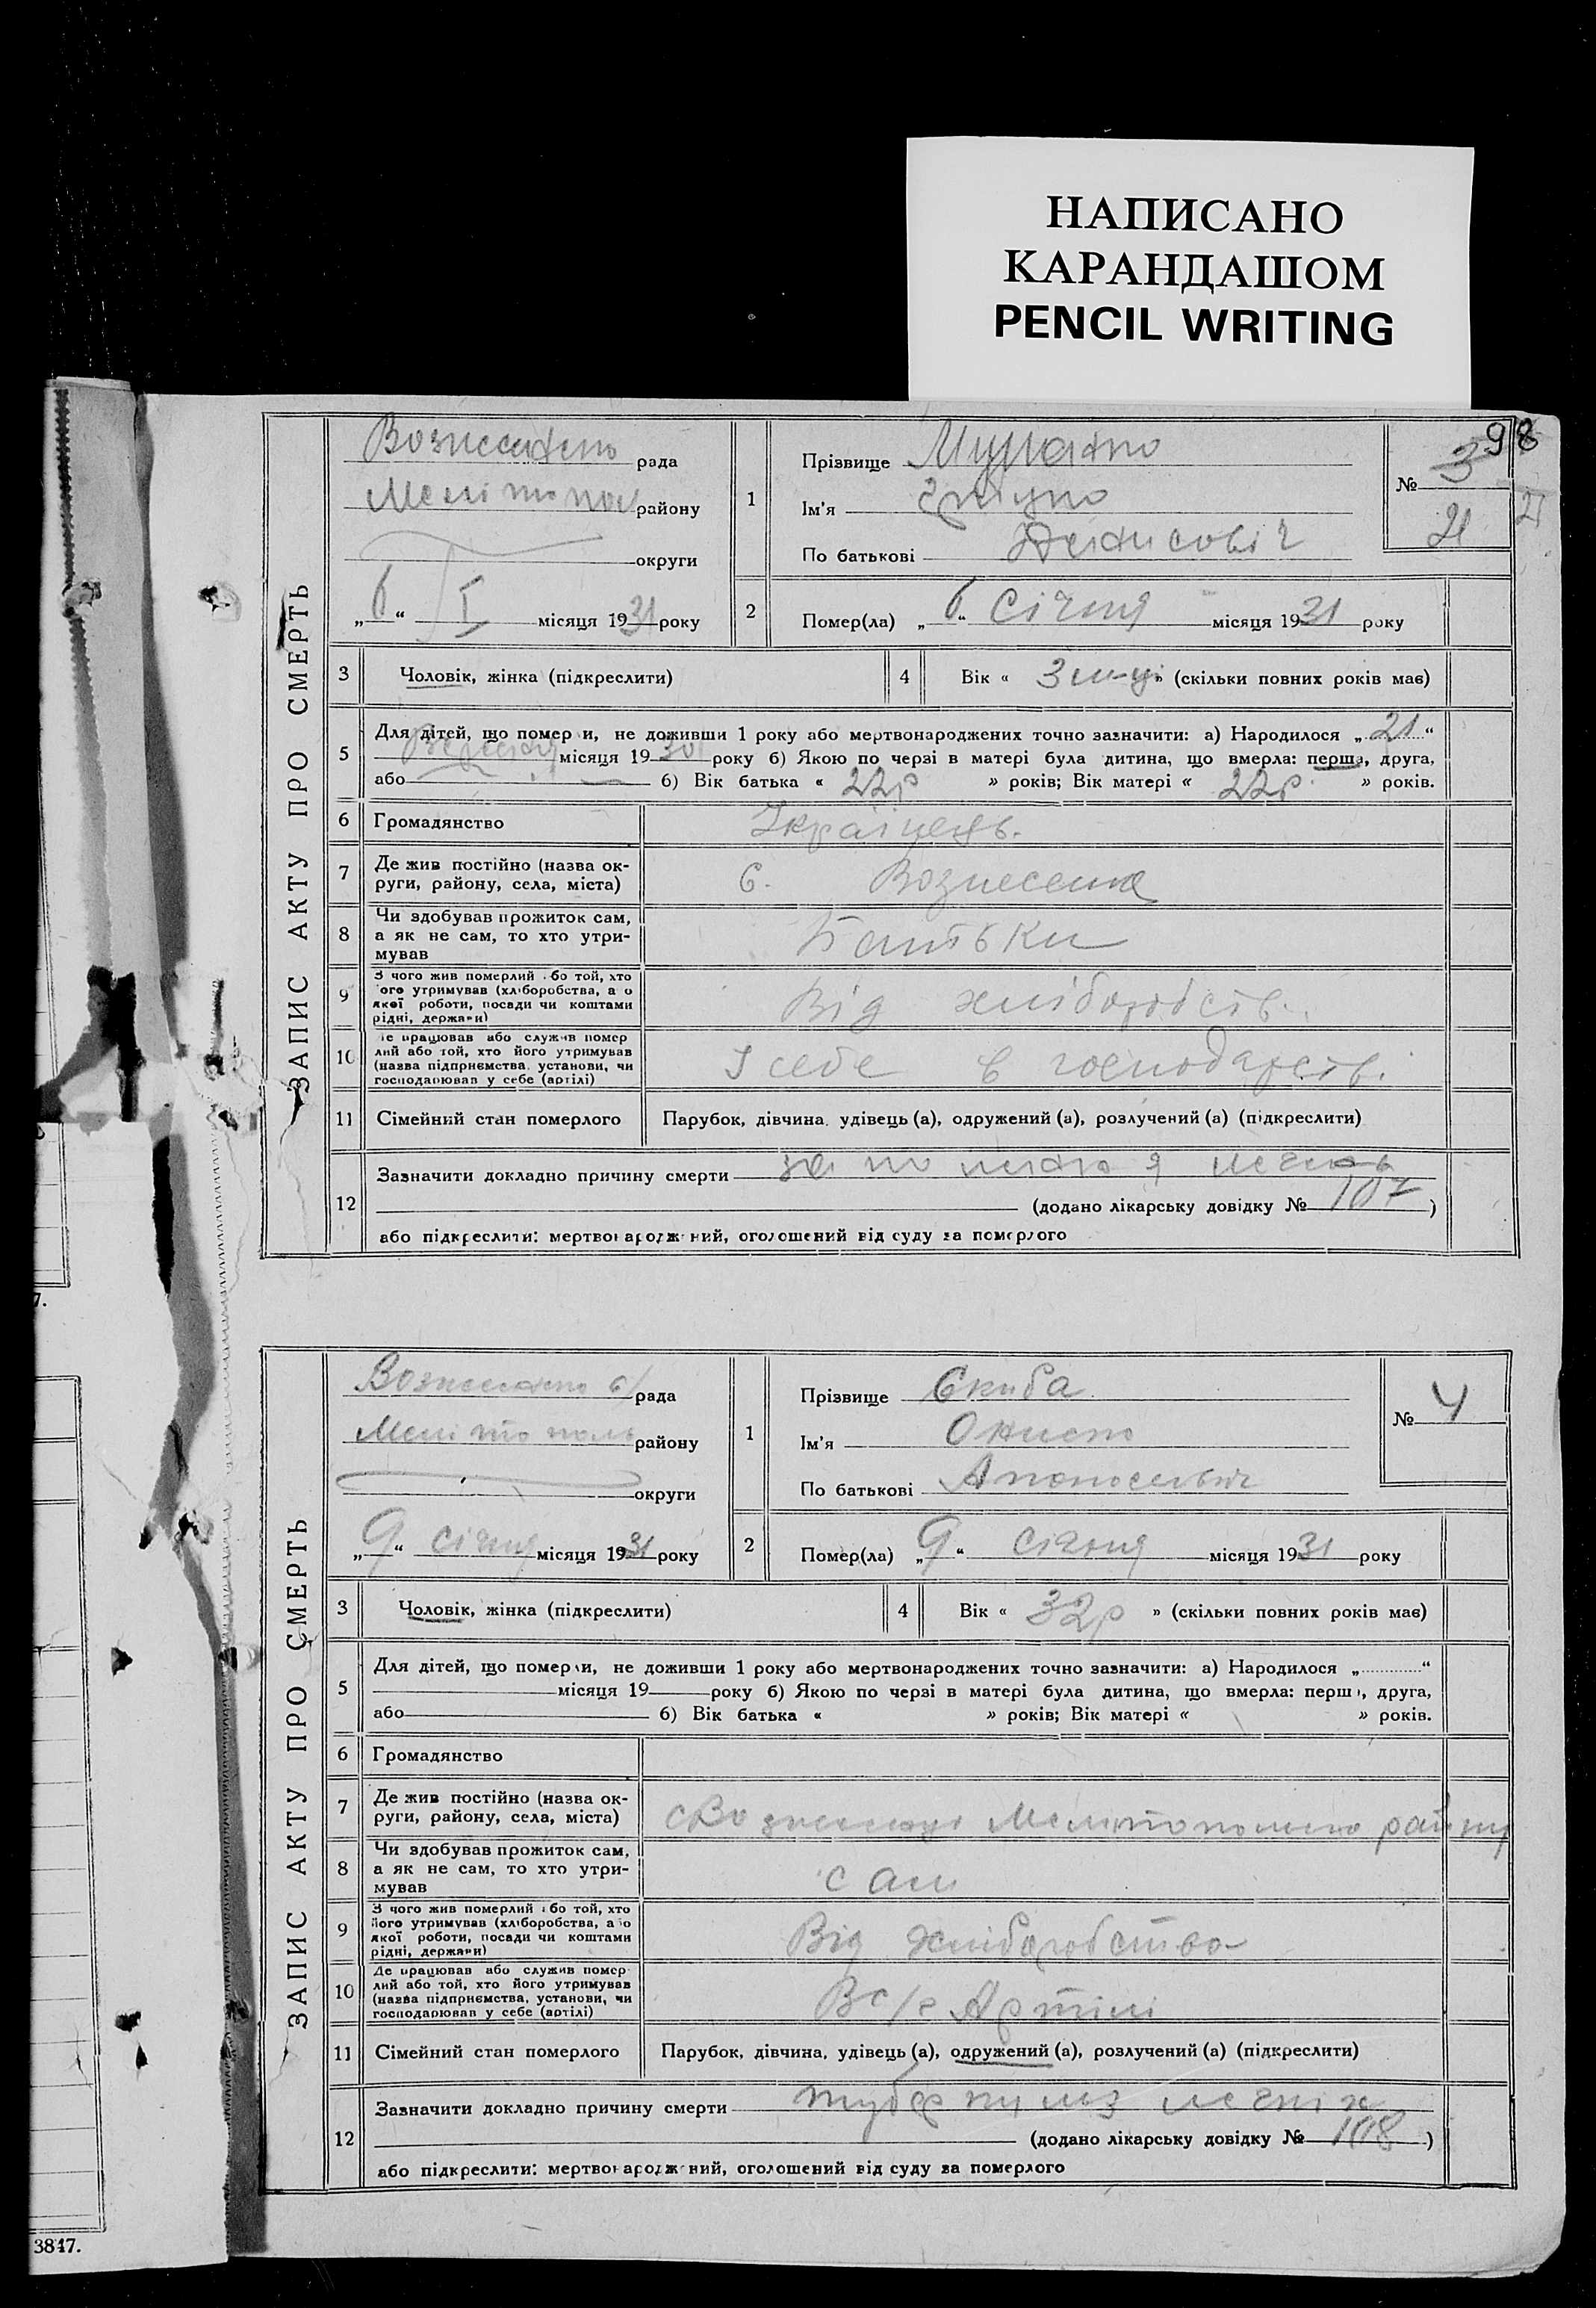 НАПИСАНО
КАРАНДАШОМ
PENCIL WRITING
98
ЗАПИС АКТУ ПРО СМЕРТЬ
рада
Меліtополь району
округи
„6“ I місяця 1931 року
1
Прізвище
Ім'я
По батькові Денисовіч
№ 3
21
21
2
Помер(ла) „6“ Січня місяця 1931 року
3 Чоловік, жінка (підкреслити)
4 Вік « 3 м-ці » (скільки повних років має)
5 Для дітей, що померли, не доживши 1 року або мертвонароджених точно зазначити: а) Народилося „21“
Вересня місяця 1930 року б) Якою по черзі в матері була дитина, що вмерла: перша, друга,
або б) Вік батька « 22р » років; Вік матері « 22р. » років.
6 Громадянство Українець.
7 Де жив постійно (назва ок-
руги, району, села, міста) с. Вознесенка
8 Чи здобував прожиток сам,
а як не сам, то хто утри-
мував Батьки
9 З чого жив померлий або той, хто
його утримував (хліборобства, або
якої роботи, посади чи коштами
рідні, держави) Від хліборобств.
10 Де працював або служив помер
лий або той, хто його утримував
(назва підприємства, установи, чи
господарював у себе (артілі) У себе в господарств.
11 Сімейний стан померлого Парубок, дівчина, удівець (а), одружений (а), розлучений (а) (підкреслити)
12 Зазначити докладно причину смерти
(додано лікарську довідку № 107)
або підкреслити: мертвонароджений, оголошений від суду за померлого
ЗАПИС АКТУ ПРО СМЕРТЬ
рада
Мелітополь району
округи
„9“ січня місяця 1931 року
1
Прізвище Скиба
Ім'я
По батькові
№ 4
2
Помер(ла) „9“ січня місяця 1931 року
3 Чоловік, жінка (підкреслити)
4 Вік « 32р » (скільки повних років має)
5 Для дітей, що померли, не доживши 1 року або мертвонароджених точно зазначити: а) Народилося „ “
місяця 19 року б) Якою по черзі в матері була дитина, що вмерла: перша, друга,
або б) Вік батька « » років; Вік матері « » років.
6 Громадянство
7 Де жив постійно (назва ок-
руги, району, села, міста)
8 Чи здобував прожиток сам,
а як не сам, то хто утри-
мував сам
9 З чого жив померлий або той, хто
його утримував (хліборобства, або
якої роботи, посади чи коштами
рідні, держави) Від хліборобства
10 Де працював або служив помер
лий або той, хто його утримував
(назва підприємства, установи, чи
господарював у себе (артілі) В с/г Артілі
11 Сімейний стан померлого Парубок, дівчина, удівець (а), одружений (а), розлучений (а) (підкреслити)
12 Зазначити докладно причину смерти туберкульз легких
(додано лікарську довідку № 108)
або підкреслити: мертвонароджений, оголошений від суду за померлого
7.
3847.